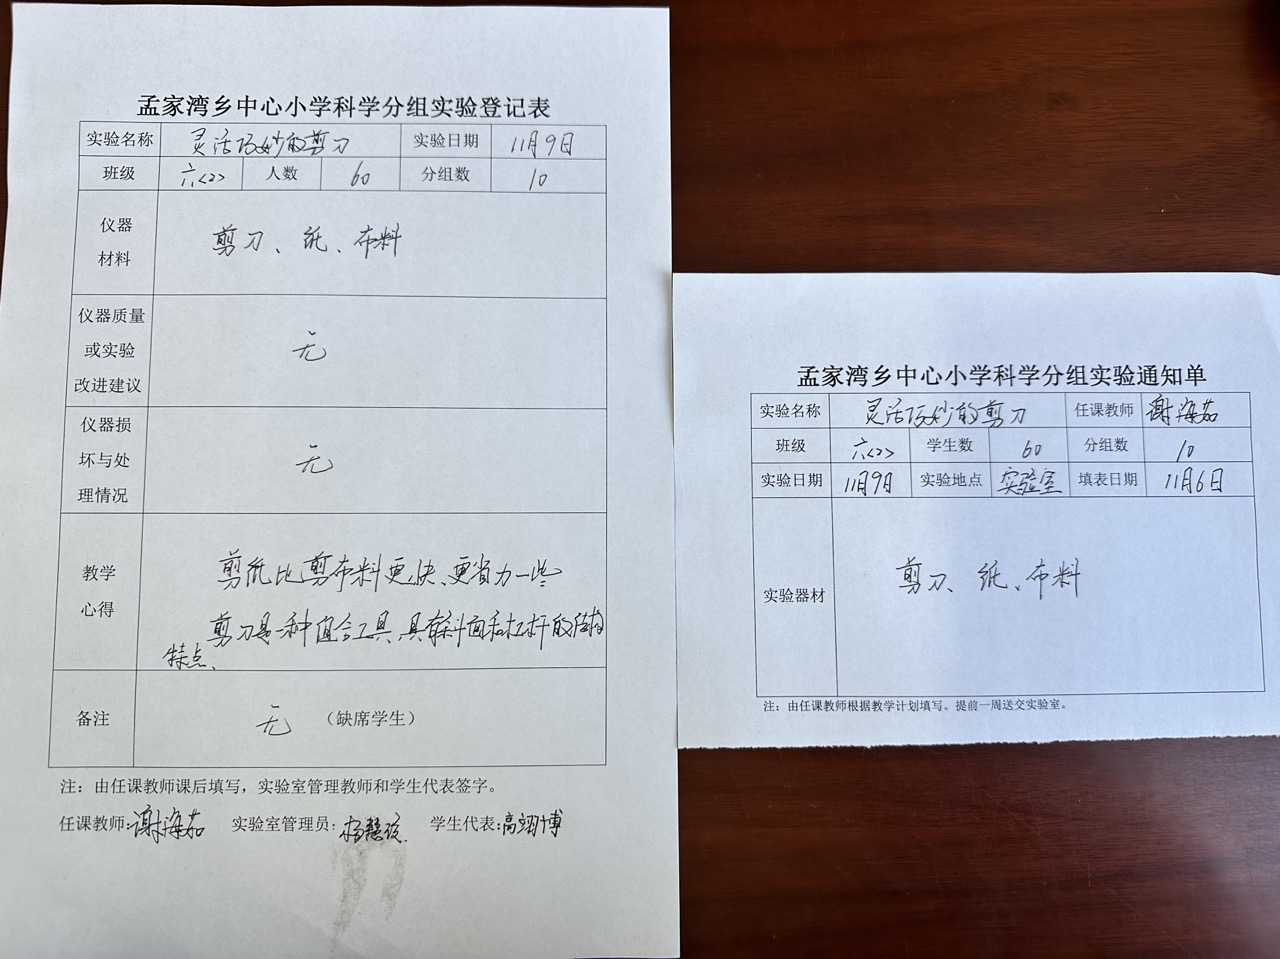 孟家湾乡中心小学科学分组实验登记表
实验名称 灵活巧妙的剪刀 实验日期 11月9日
班级 六<2> 人数 60 分组数 10
仪器
材料
剪刀、纸、布料
仪器质量
或实验
改进建议
无
仪器损
坏与处
理情况
无
教学
心得
剪纸比剪布料更快、更省力一些
剪刀是一种组合工具,具有斜面和杠杆的结构
特点、
备注 无 (缺席学生)
注:由任课教师课后填写,实验室管理教师和学生代表签字。
任课教师:谢海茹 实验室管理员: 学生代表:高翊博
孟家湾乡中心小学科学分组实验通知单
实验名称 灵活巧妙的剪刀 任课教师 谢海茹
班级 六<2> 学生数 60 分组数 10
实验日期 11月9日 实验地点 实验室 填表日期 11月6日
实验器材 剪刀、纸、布料
注:由任课教师根据教学计划填写。提前一周送交实验室。